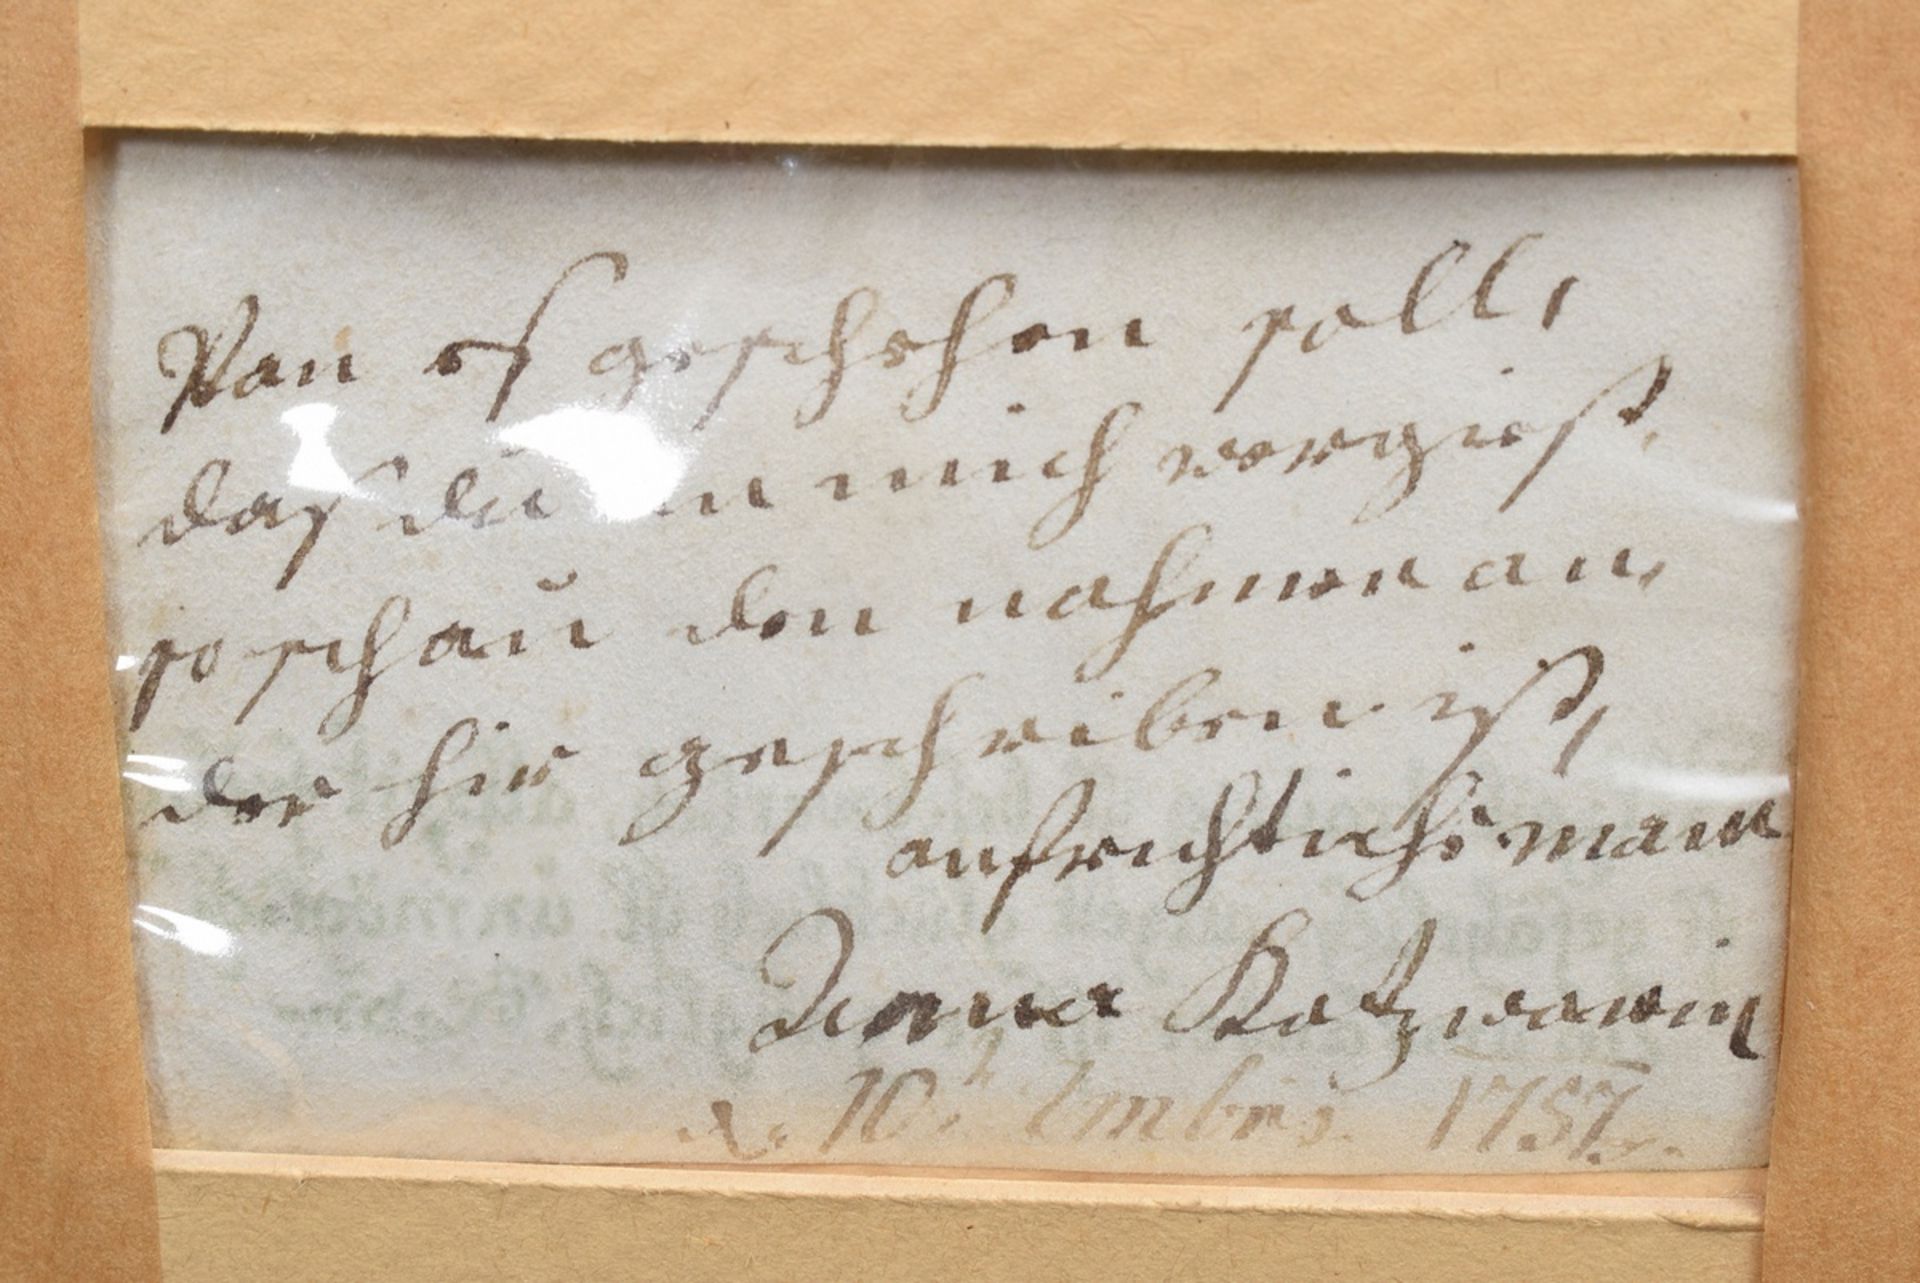 Wan es geschehen soll,
das du an mich vergist,
so schau den nahmen an,
der hir geschreiben ist,
aufrichtichs
Katzwerin
d. 10 br 1757.